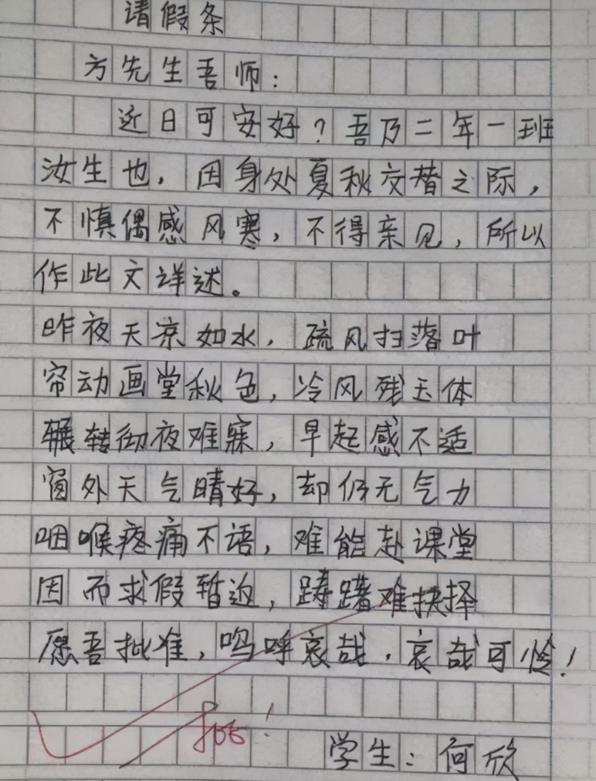 请假条
方先生吾师：
近日可安好？吾乃二年一班
汝生也，因身处夏秋交替之际，
不慎偶感风寒，不得亲见，所以
作此文详述。
昨夜天凉如水，疏风扫落叶
帘动画堂秋色，冷风残玉体
辗转彻夜难寐，早起感不适
窗外天气晴好，却仍无气力
咽喉疼痛不语，难能赴课堂
因而求假暂迫，踌躇难抉择
愿吾批准，呜呼哀哉，哀哉可怜！
批！
学生：何欣